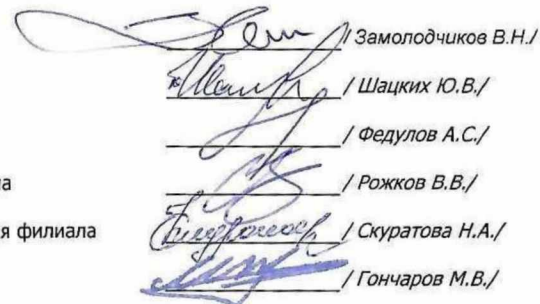 / Замолодчиков В.Н./
/ Шацких Ю.В./
/ Федулов А.С./
на / Рожков В.В./
я филиала / Скуратова Н.А./
/ Гончаров М.В./